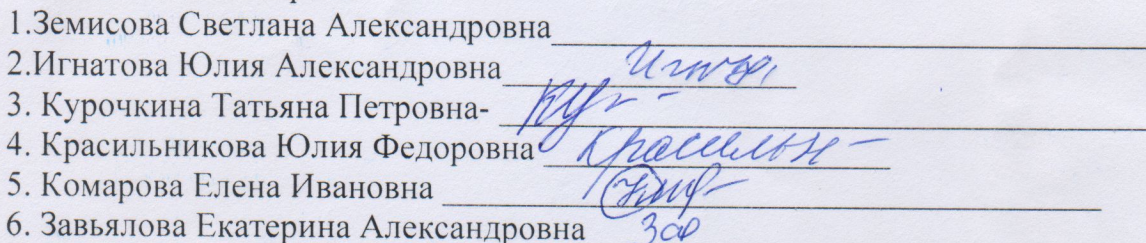 1.Земисова Светлана Александровна
2.Игнатова Юлия Александровна
3. Курочкина Татьяна Петровна-
4. Красильникова Юлия Федоровна
5. Комарова Елена Ивановна
6. Завьялова Екатерина Александровна